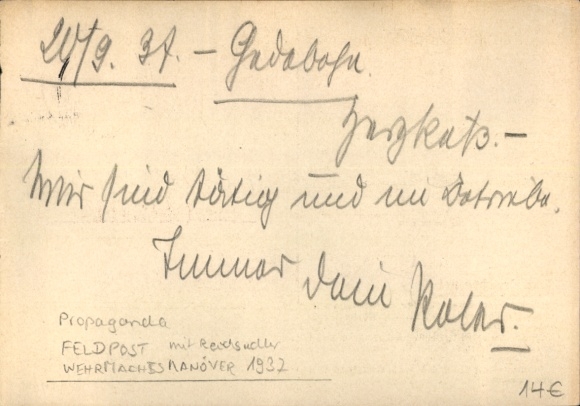 20/9. 37. – Gedebohn.
Herzkatz. –
Wir sind tätig und im Betriebe.
Immer dein Peter.
Propaganda
FELDPOST mit Reichsadler
WEHRMACHTSMANÖVER 1937
14€